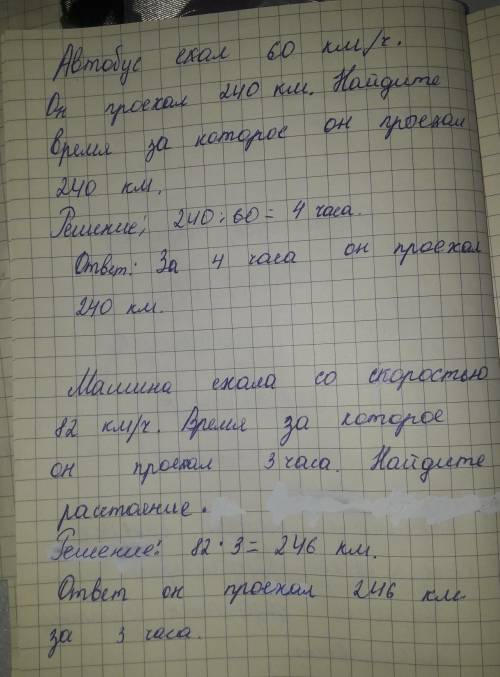 Автобус ехал 60 км/ч.
Он проехал 240 км. Найдите
время за которое он проехал
240 км.
Решение: 240:60= 4 часа.
Ответ: За 4 часа он проехал
240 км.
Машина ехала со скоростью
82 км/ч. Время за которое
он проехал 3 часа. Найдите
расстаяние.
Решение: 82·3= 246 км.
Ответ он проехал 246 км
за 3 часа.